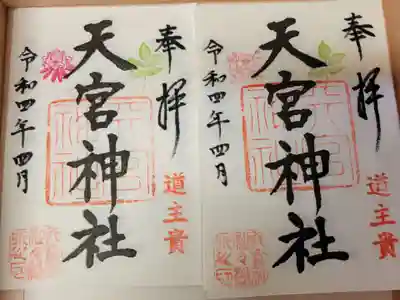 奉拝
道主貴
天宮神社
令和四年四月
奉拝
道主貴
天宮神社
令和四年四月